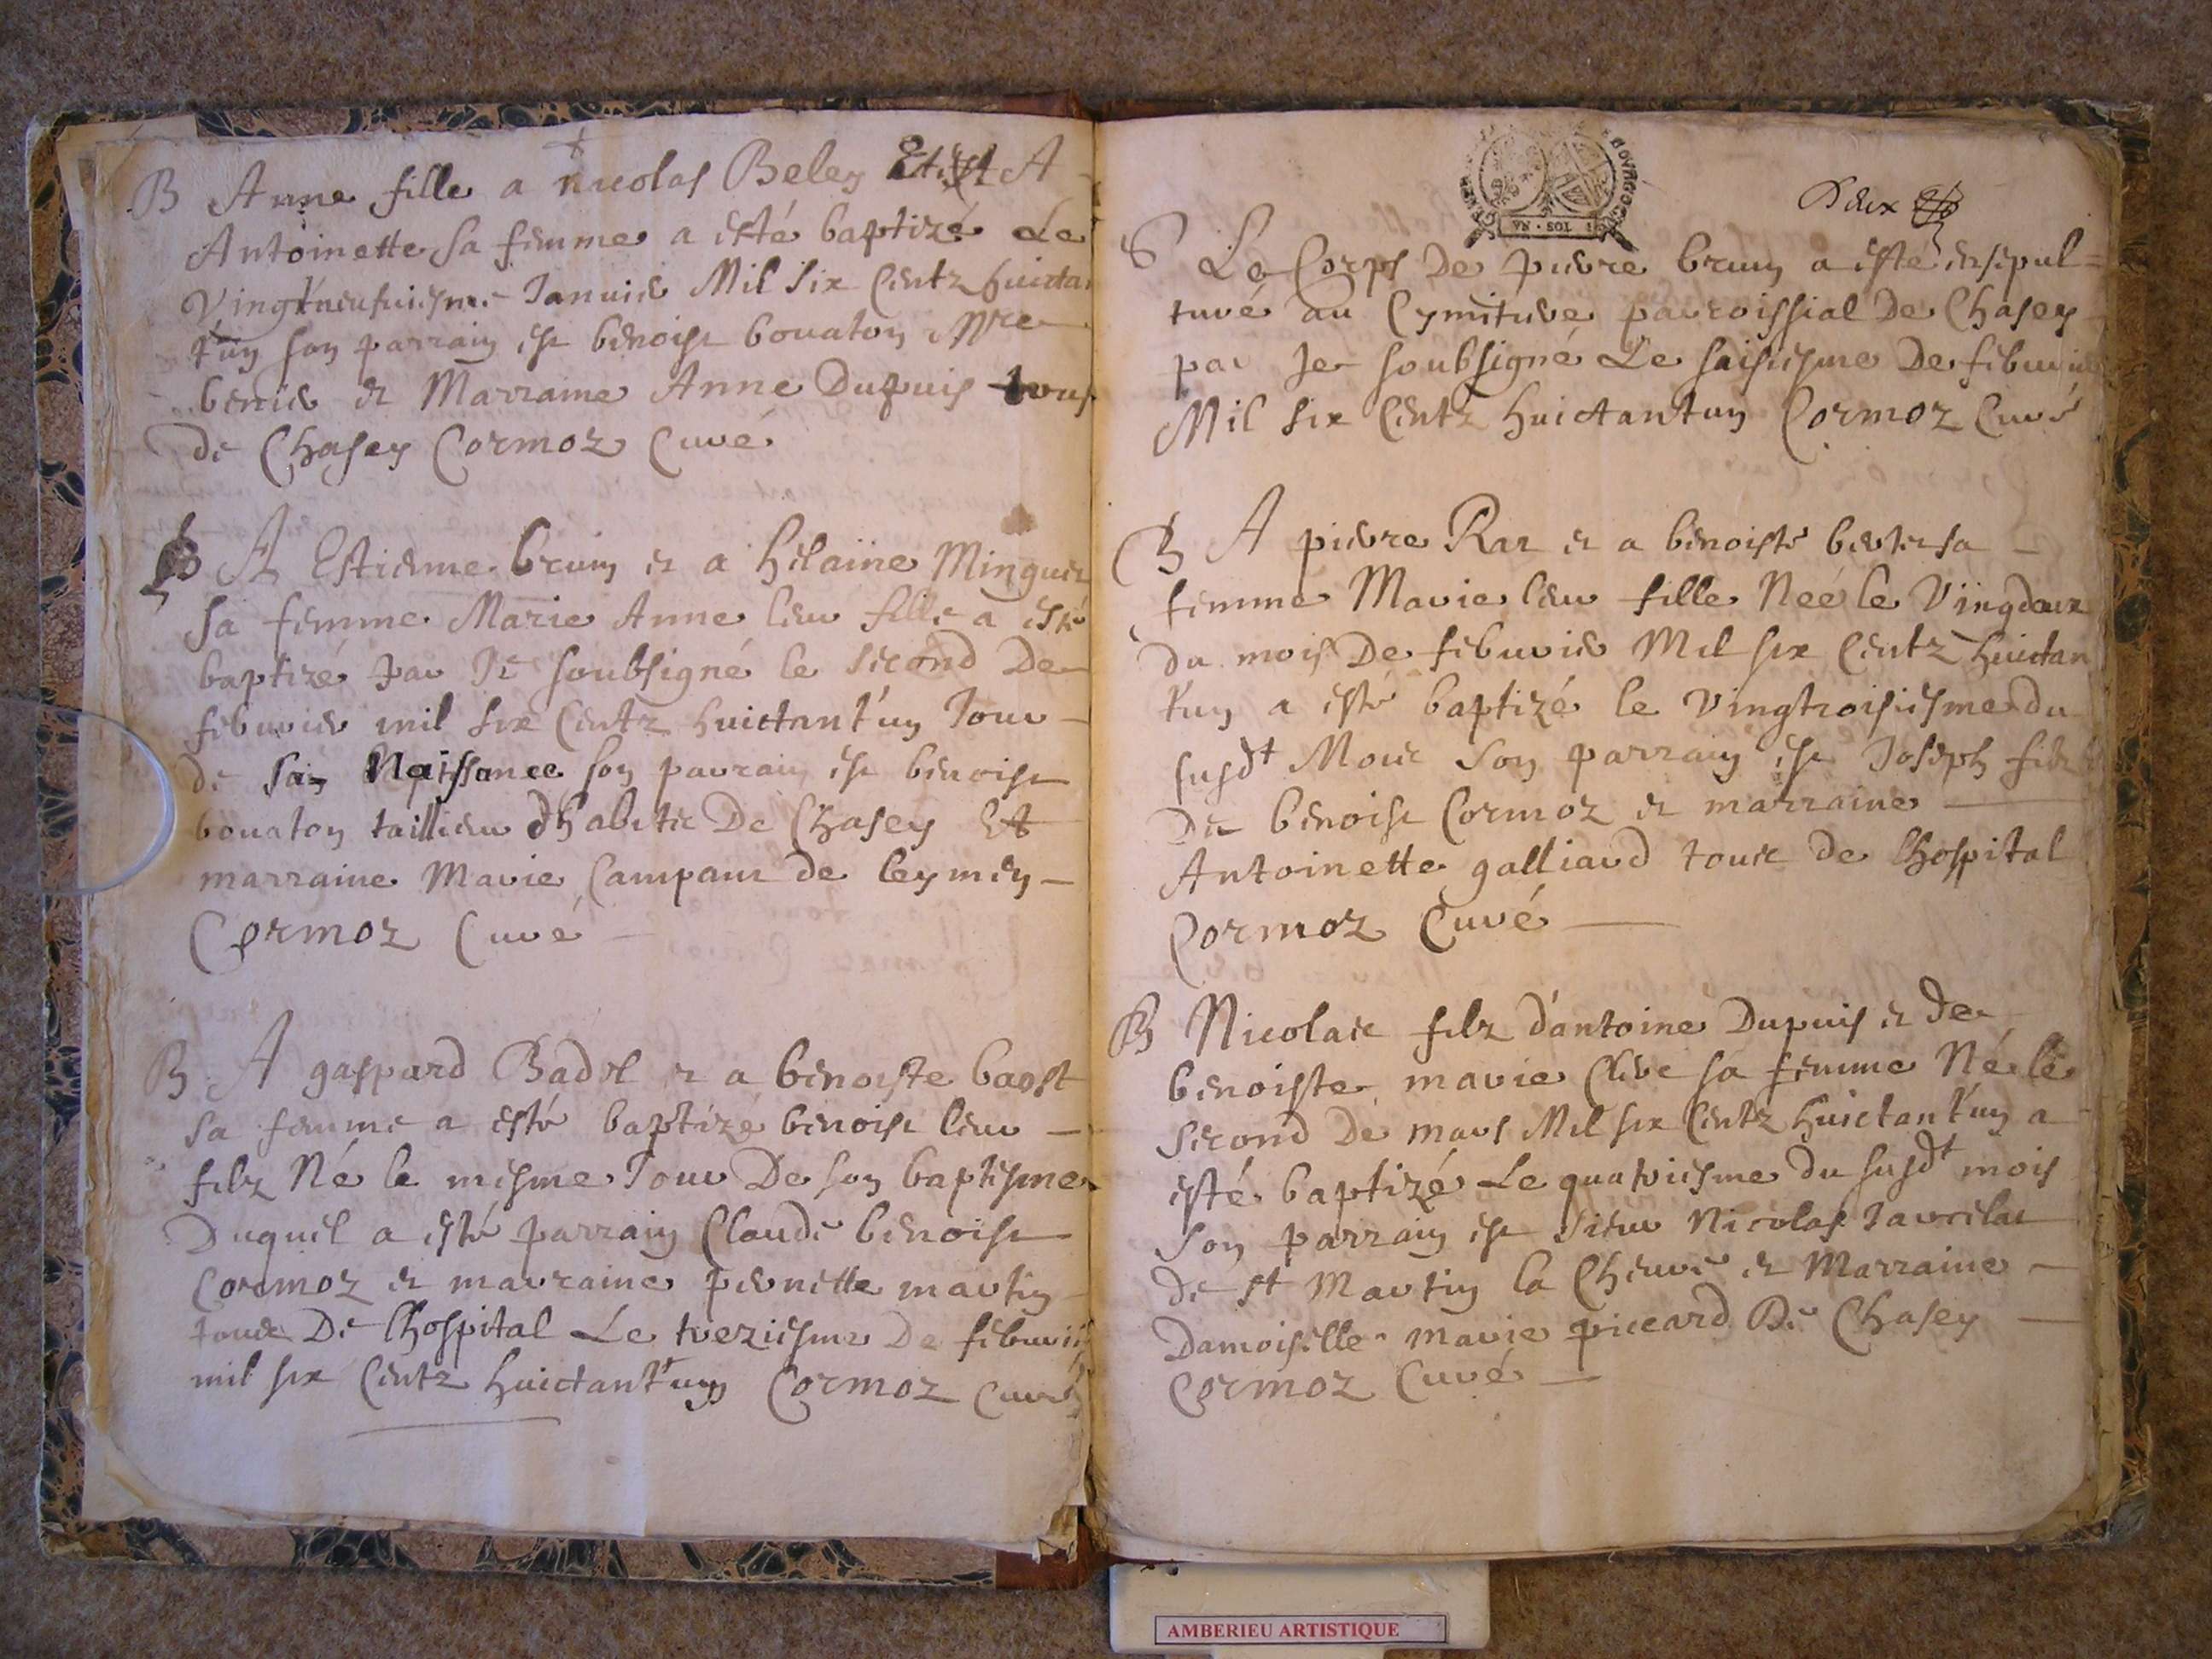 B Anne fille a nicolas Beley Et A
Antoinette sa femme a esté baptizé Le
Vingtneufuiesme Januier Mil six Centz huictan
t'un son parrain est benoist bouaton
benier et Marraine Anne Dupuis tous
de Chasey Cormoz Curé
B A Estienne bruin et a helaine Minguet
sa femme Marie Anne leur fille a esté
baptizé par Je soubsigné le second De
februier mil six Centz huictant'un Jour
de sa Naissance son parrain est benoist
bouaton tailleur d'habitz De Chasey Et
marraine Marie Campant de leymen
Cormoz Curé
B A gaspard Badel et a benoiste
sa femme a esté baptizé benoist leur
filz Né le mesme Jour De son baptesme
Duquel a esté parrain Claude benoist
Cormoz et marraine pernette martin
tous De lhospital Le treziesme De februier
mil six Centz huictant'un Cormoz Curé
GENER BOVRGOG
VN · SOL
Deux
S Le Corps De pierre bruin a esté ensepul=
turé au Cymitiere parroissial De Chasey
par Je soubsigné Le saisiesme De februier
Mil six Centz huictantun Cormoz Curé
B A pierre Rat et a benoiste sa
femme Marie leur fille Neé le Vingdeux
du mois De februier Mil six Centz huictan
t'un a esté baptizé le vingtroisiesme du
susdt Mois son parrain est Joseph filz
De benoist Cormoz et marraine
Antoinette galliard tous de lhospital
Cormoz Curé
B Nicolas filz d'antoine Dupuis et de
benoiste marie Clerc sa femme Né le
second De mars Mil six Centz huictant'un a
esté baptizé Le quatriesme du susdt mois
son parrain est sieur Nicolas
de st Martin la Cheure et Marraine
Damoiselle marie piccard De Chasey
Cormoz Curé
AMBERIEU ARTISTIQUE